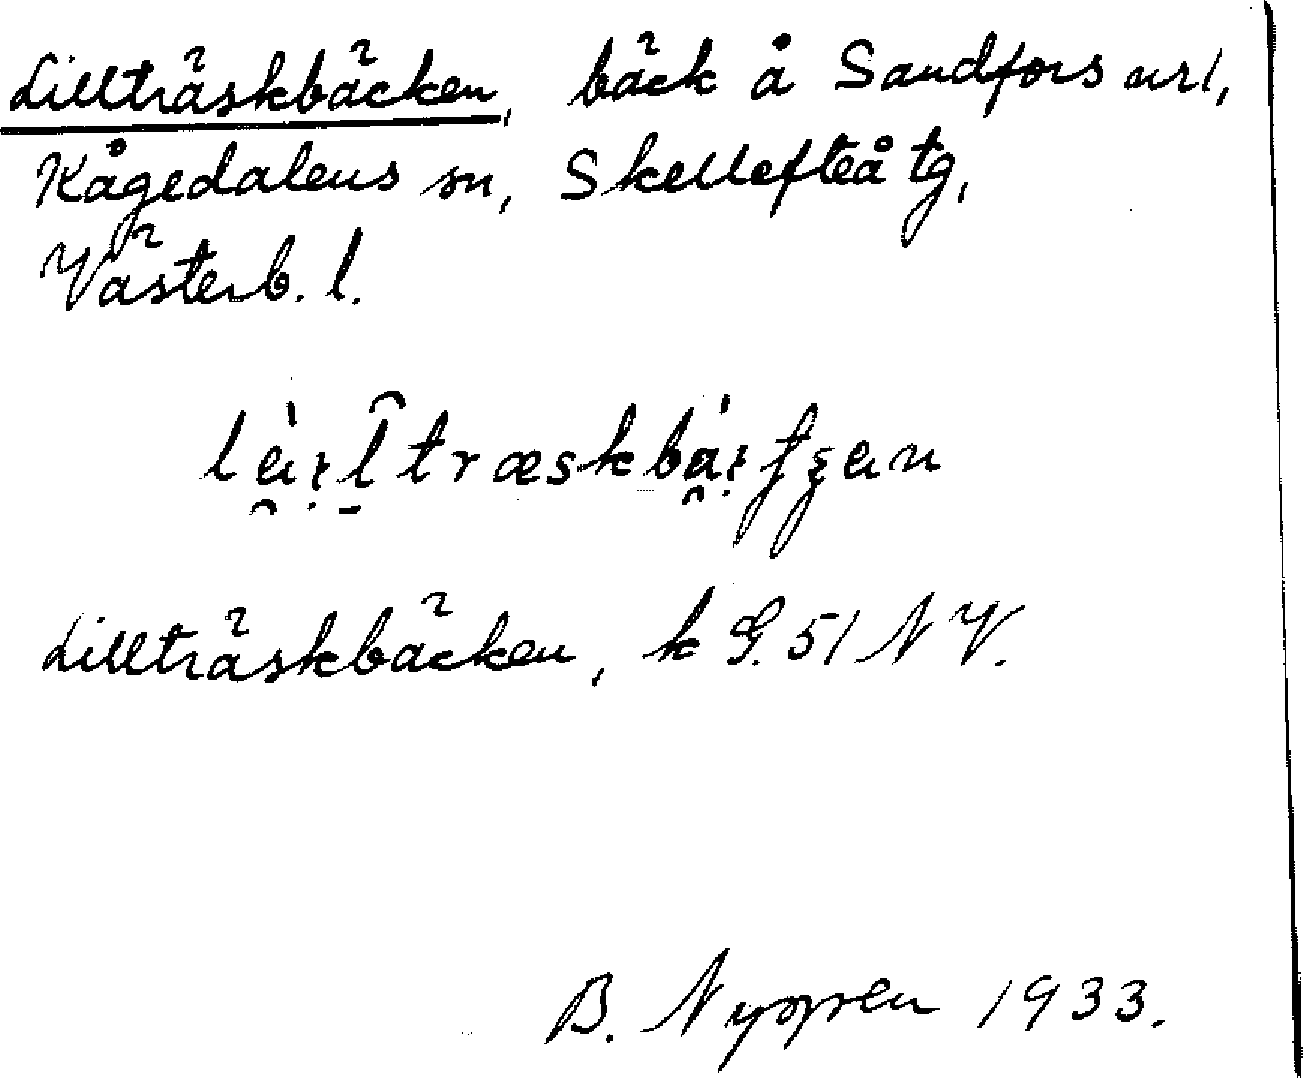 Lillträskbäcken, bäck å Sandfors url,
Kågedalens sn, Skellefteå tg,
Västerb. l.
Lillträskbäcken, k G. 51 NV.
B. Nyppen 1933.